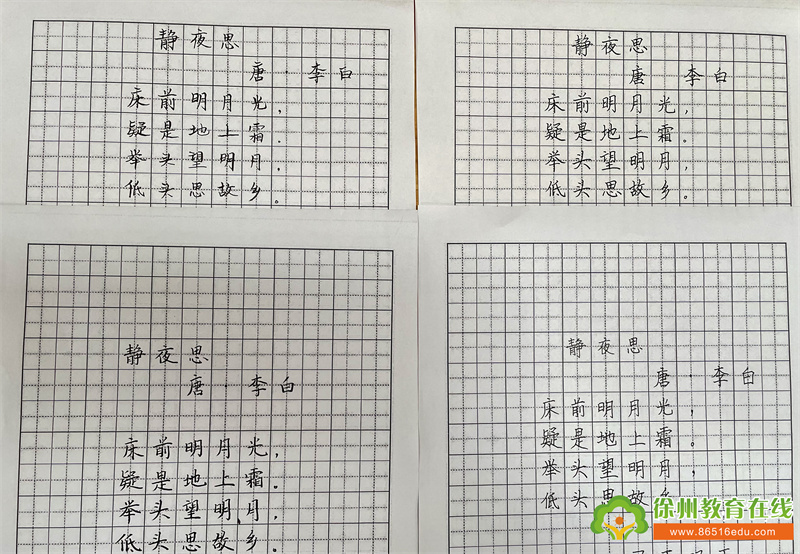 静夜思
唐·李白
床前明月光，
疑是地上霜。
举头望明月，
低头思故乡。
静夜思
唐 李白
床前明月光，
疑是地上霜。
举头望明月，
低头思故乡。
静夜思
唐·李白
床前明月光，
疑是地上霜。
举头望明月，
低头思故乡。
静夜思
唐·李白
床前明月光，
疑是地上霜。
举头望明月，
低头思故乡
徐州教育在线
www.86516edu.com